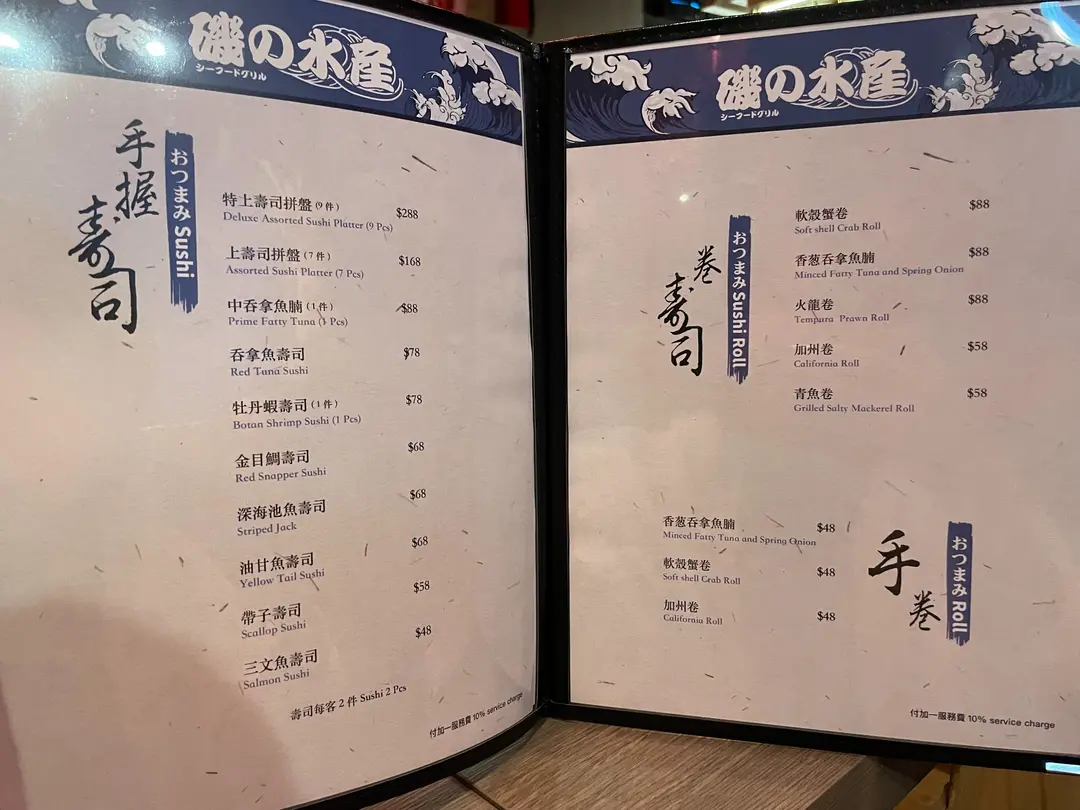 磯の水産
シーフードグリル
手握
壽司
おつまみ Sushi
特上壽司拼盤 (9件) $288
Deluxe Assorted Sushi Platter (9 Pcs)
上壽司拼盤 (7件) $168
Assorted Sushi Platter (7 Pcs)
中吞拿魚腩 (1件) $88
Prime Fatty Tuna (1 Pcs)
吞拿魚壽司 $78
Red Tuna Sushi
牡丹蝦壽司 (1件) $78
Botan Shrimp Sushi (1 Pcs)
金目鯛壽司 $68
Red Snapper Sushi
深海池魚壽司 $68
Striped Jack
油甘魚壽司 $68
Yellow Tail Sushi
帶子壽司 $58
Scallop Sushi
三文魚壽司 $48
Salmon Sushi
壽司每客 2 件 Sushi 2 Pcs
付加一服務費 10% service charge
磯の水産
シーフードグリル
卷
壽司
おつまみ Sushi Roll
軟殼蟹卷 $88
Soft shell Crab Roll
香葱吞拿魚腩 $88
Minced Fatty Tuna and Spring Onion
火龍卷 $88
Tempura Prawn Roll
加州卷 $58
California Roll
青魚卷 $58
Grilled Salty Mackerel Roll
香葱吞拿魚腩 $48
Minced Fatty Tuna and Spring Onion
軟殼蟹卷 $48
Soft shell Crab Roll
加州卷 $48
California Roll
手
卷
おつまみ Roll
付加一服務費 10% service charge